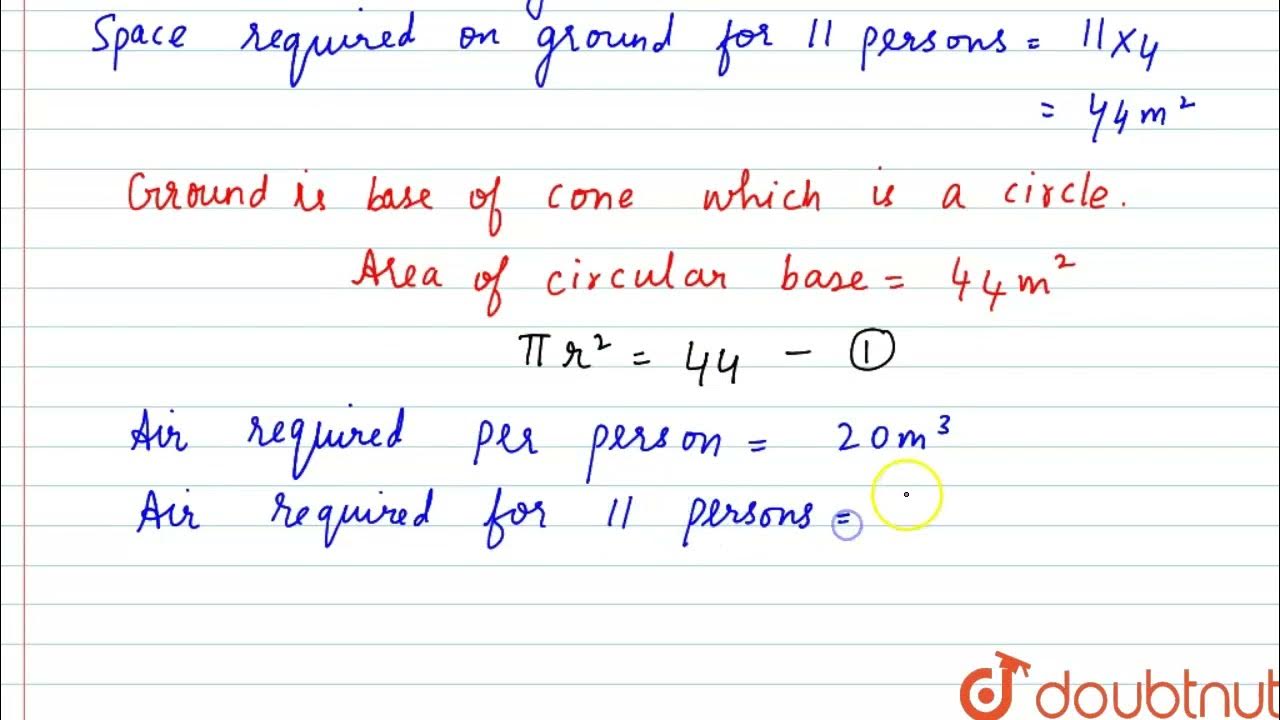 Space required on ground for 11 persons = 11×4
= 44m²
Ground is base of cone which is a circle.
Area of circular base = 44m²
πr² = 44 – ①
Air required per person = 20m³
Air required for 11 persons =
doubtnut